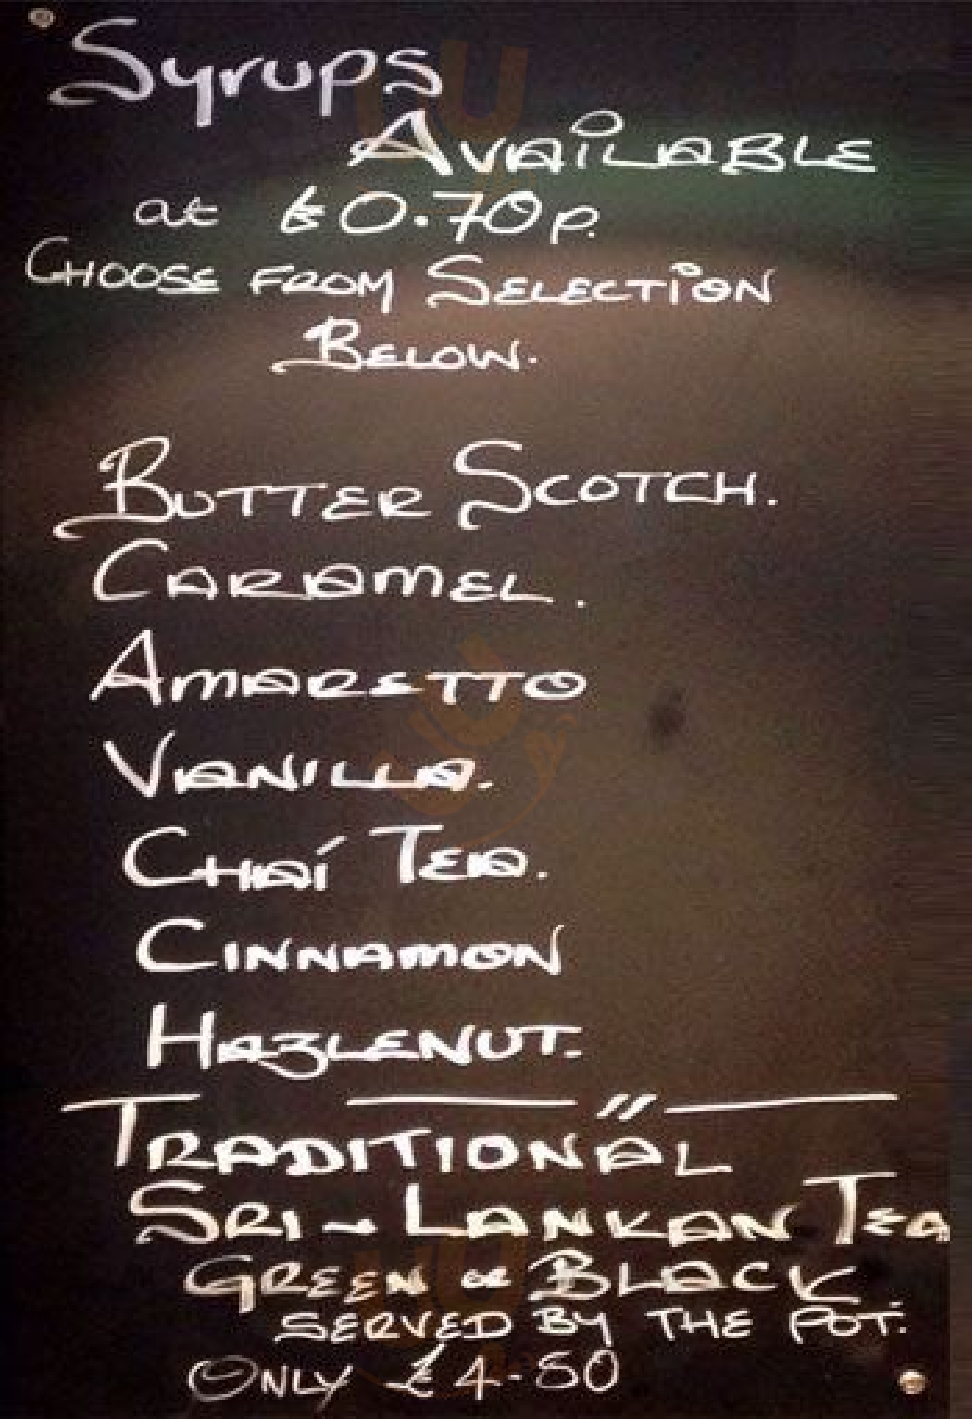 Syrups
AVAiLABLE
at £0.70p.
CHOOSE FROM SELECTiON
BELOW.
BUTTER SCOTCH.
CARAMEL.
AMARETTO
VANILLA.
CHAí TEA.
CINNAMON
HAZLENUT.
TRADITIONAL
SRI-LANKAN TEA
GREEN or BLACK
SERVED BY THE POT.
ONLY £4-50